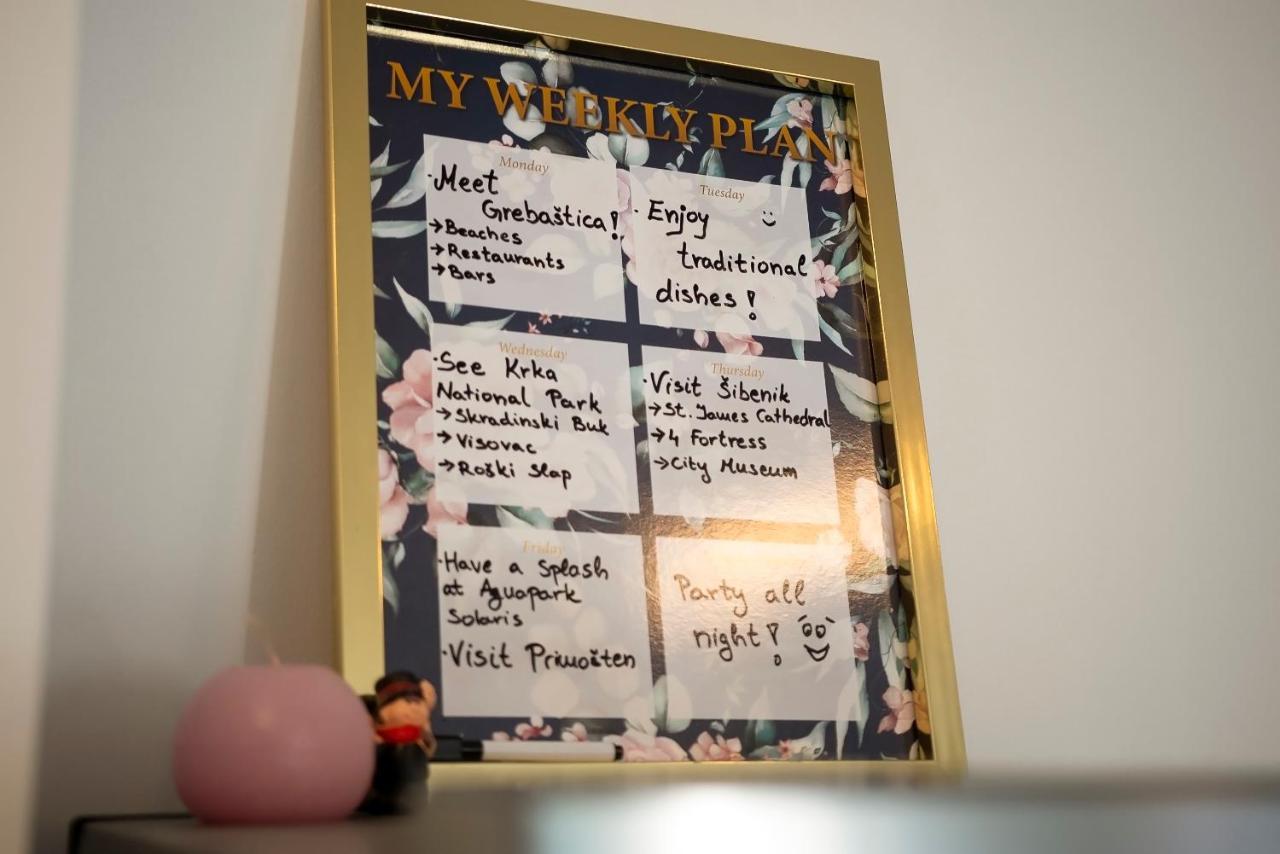 MY WEEKLY PLAN
Monday
·Meet
Grebaštica!
→Beaches
→Restaurants
→Bars
Tuesday
·Enjoy
traditional
dishes!
Wednesday
·See Krka
National Park
→Skradinski Buk
→Visovac
→Roški Slap
Thursday
·Visit Šibenik
→St. James Cathedral
→4 Fortress
→City Museum
Friday
·Have a Splash
at Aquapark
Solaris
·Visit Primošten
Party all
night!